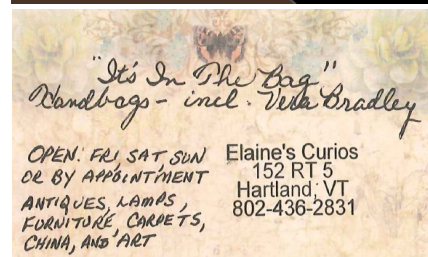 "It's In The Bag"
Handbags - incl. Vera Bradley
OPEN: FRI, SAT, SUN
OR BY APPOINTMENT
ANTIQUES, LAMPS,
FURNITURE, CARPETS,
CHINA, AND ART
Elaine's Curios
152 RT 5
Hartland, VT
802-436-2831